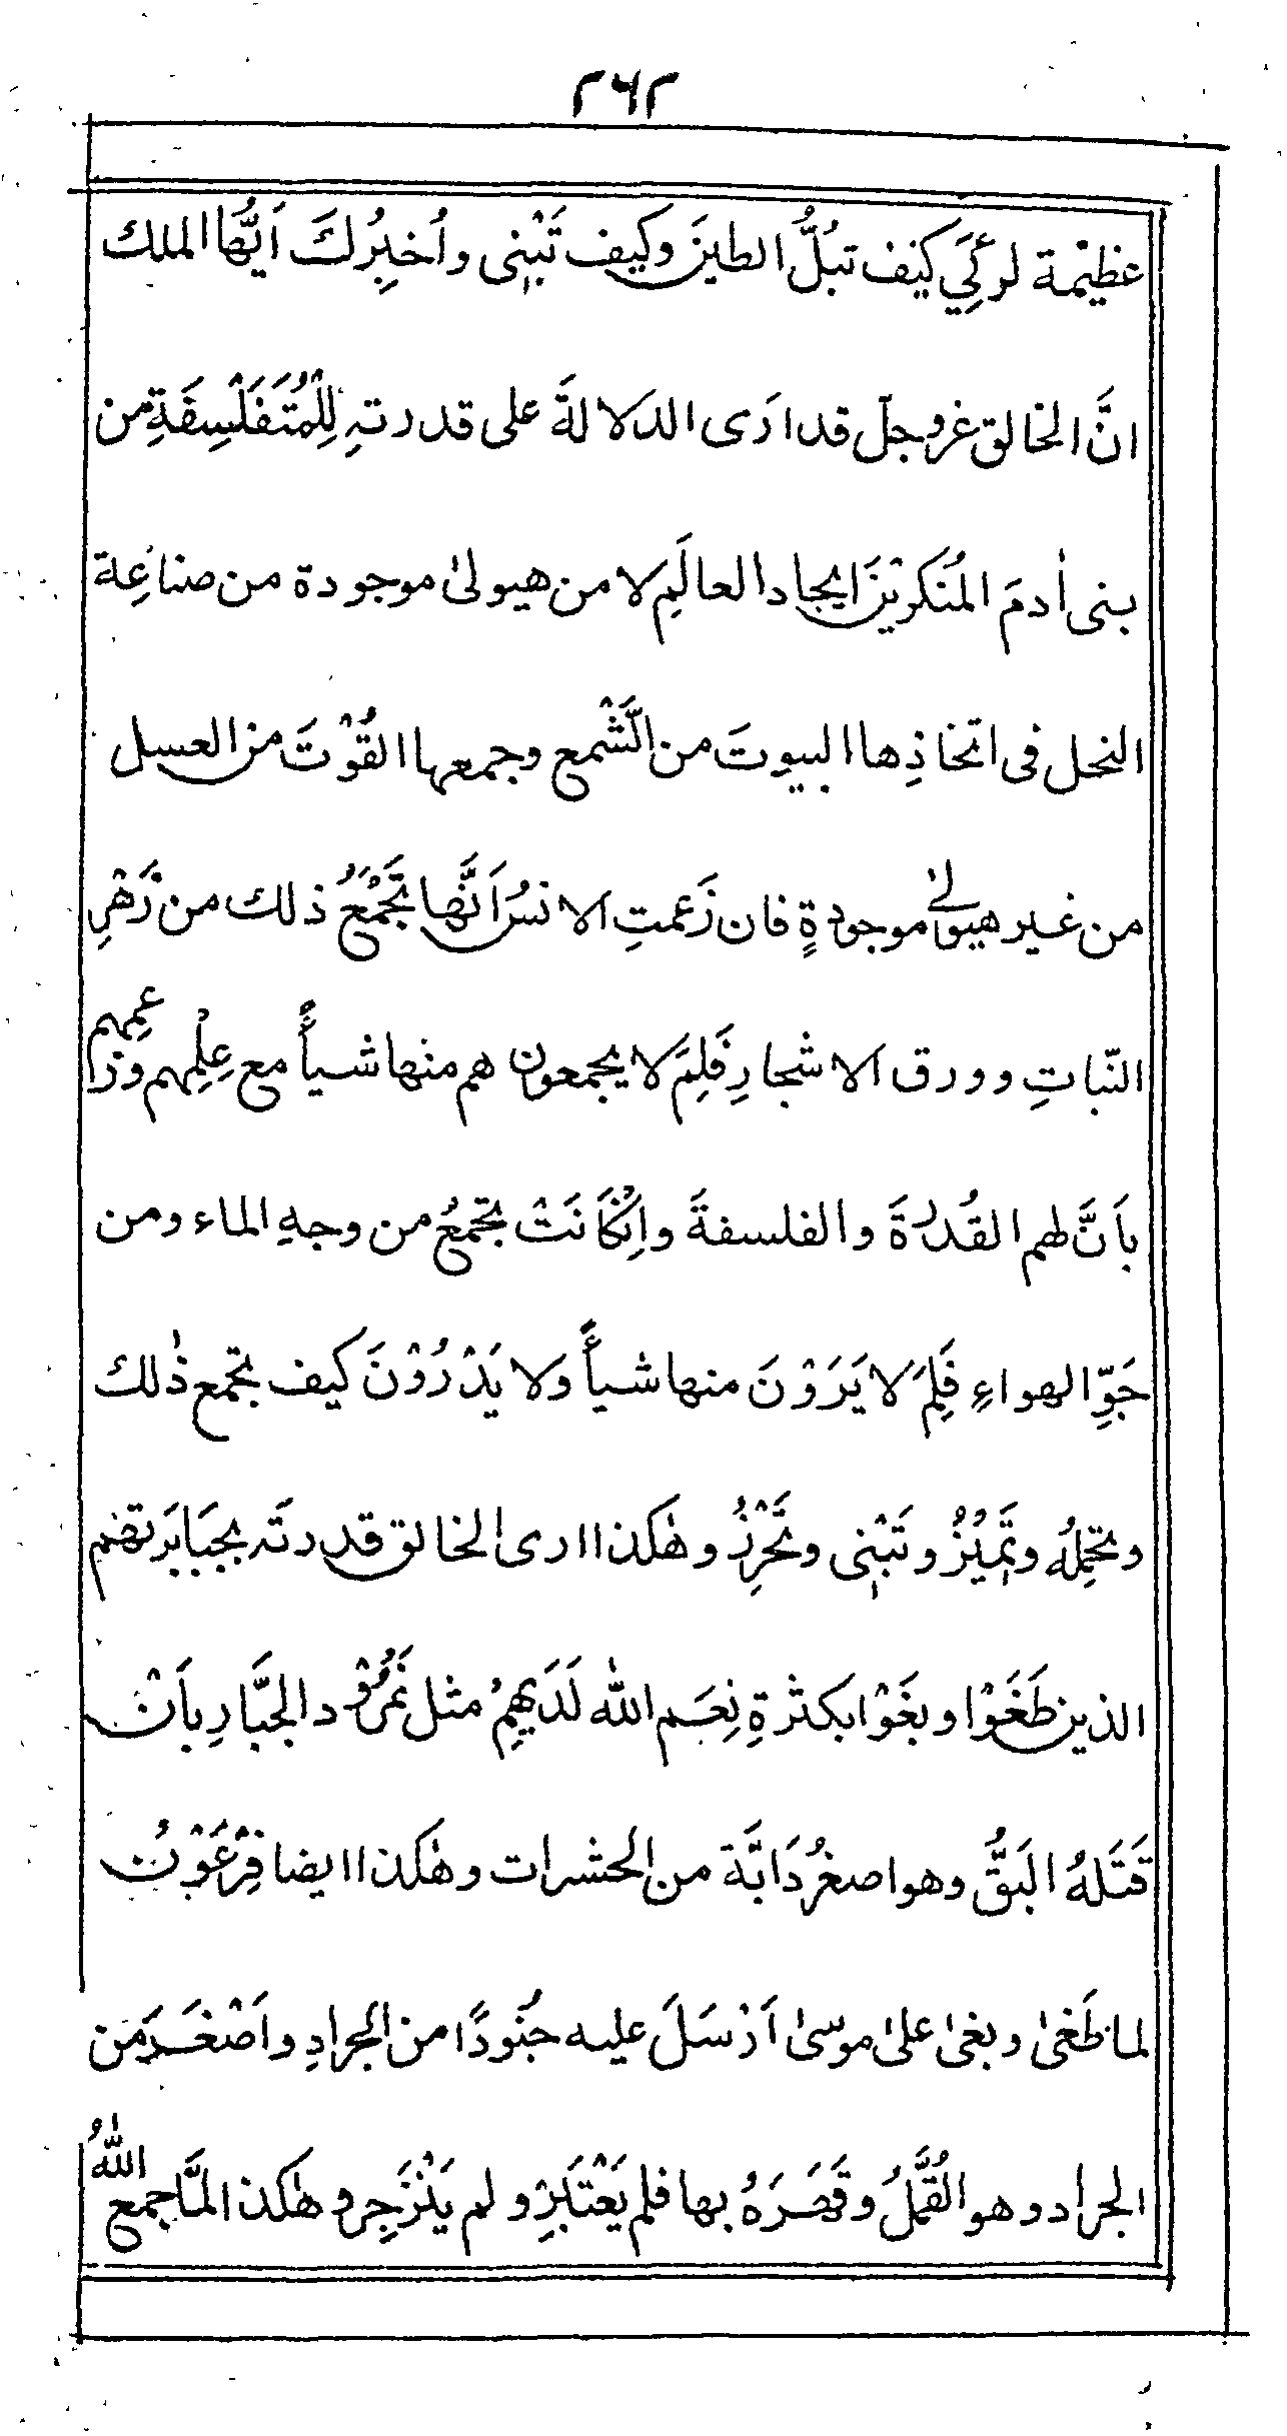 ٢٦٢
عَظِيْمة لرئَي كَيْف تبُلُّ الطينَ وكيف تَبْنِى واُخبِرُكَ اَيُّها الملك
انَّ الخالق عزوجلّ قد ارَى الدلالةَ على قدرتہِ لِلْمُتَفَلْسِفَةِ من
بنى اٰدمَ المُنْكرِيْنَ ايجاد العالَمِ لا من هيولىٰ موجودة من صناعِة
النحل فى اتخاذِها البيوتَ من الشَّمْع وجمعها القُوْتَ من العسل
من غير هيولىٰ موجودةٍ فان زَعمتِ الانسُ اَنَّها تَجْمَعُ ذلك من زَهْرِ
النّباتِ وورق الاشجارِ فَلِمَ لا يجمعون هم منها شيأً مع عِلْمِهم وزعمِهم
باَنَّ لهم القُدْرةَ والفلسفةَ واِنْ كَانَتْ تجمعُ من وجهِ الماء ومن
جَوِّ الهواءِ فَلِمَ لا يَرَوْنَ منها شيأً ولا يَدْرُوْنَ كيف تجمع ذٰلك
وتحمِلُه وتَمِيْزُ وتَبْنِى وتَحْرِزُ وهٰكذا ارى الخالق قدرتَه بجبَابرَتهم
الذين طَغَوْا وبغَوْا بكثرةِ نِعَم اللّٰه لَدَيهِمْ مثل نَمْرُوْد الجبَّارِ باَنْ
قَتَلَهُ البَقُّ وهو اصغرُ دَابَّة من الحشرات وهٰكذا ايضا فِرْعَوْنُ
لما طَغىٰ وبغىٰ علىٰ موسىٰ اَرْسَلَ عليه جُنُودًا من الجرادِ واَصْغَرَ من
الجراد وهو القُمَّلُ وقَهَرَهُ بها فلم يَعْتَبِرْ ولم يَنْزَجِر وهٰكذا لمَّا جمع اللّٰهُ